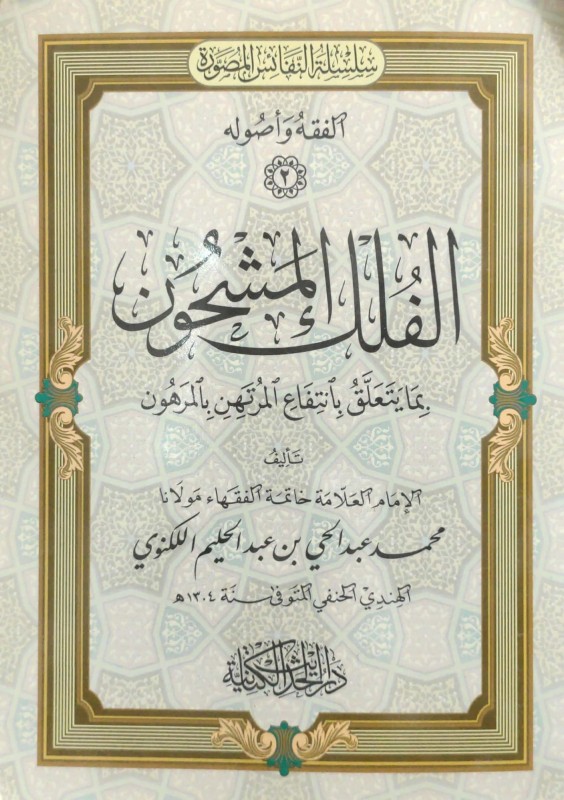 سلسلة النفائس المصورة
الفقه وأصوله
٢
الفلك المشحون
بِمَا يَتَعَلَّقُ بِانتِفَاعِ المُرْتَهِنِ بِالمَرهُون
تأليف
الإمام العلامة خاتمة الفقهاء مولانا
محمد عبد الحي بن عبد الحليم اللكنوي
الهندي الحنفي المتوفى سنة ١٣٠٤هـ